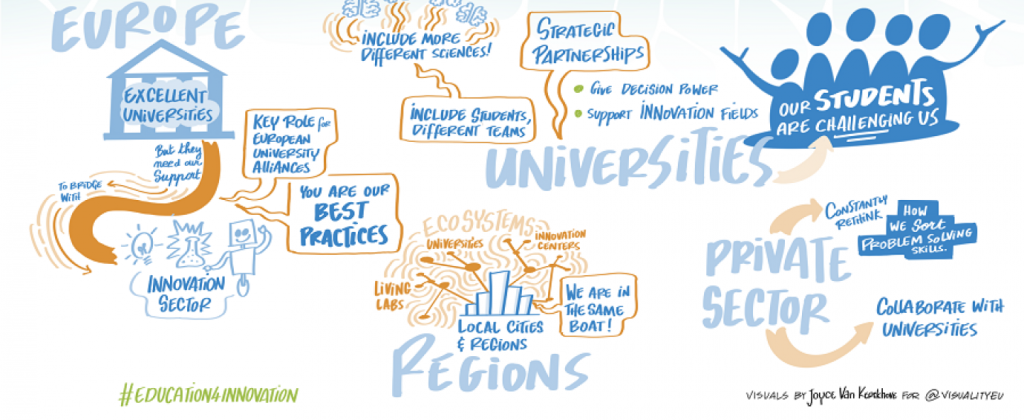 EUROPE
EXCELLENT
UNIVERSITIES
But they
need our
Support
TO BRIDGE
WITH
KEY ROLE for
EUROPEAN
UNIVERSITY
ALLIANCES
YOU ARE OUR
BEST
PRACTICES
INNOVATION
SECTOR
#EDUCATION4INNOVATION
INCLUDE MORE
Different SCIENCES!
INCLUDE STUDENTS,
DIFFERENT TEAMS
STRATEGIC
PARTNERSHIPS
GIVE DECISION POWER
SUPPORT INNOVATION FIELDS
UNIVERSITIES
OUR STUDENTS
ARE CHALLENGING US
ECOSYSTEMS
UNIVERSITIES
INNOVATION
CENTERS
LIVING
LABS
WE ARE IN
THE SAME
BOAT!
LOCAL CITIES
& REGIONS
REGIONS
CONSTANTLY
RETHINK
HOW
WE SORT
PROBLEM SOLVING
SKILLS.
PRIVATE
SECTOR
COLLABORATE WITH
UNIVERSITIES
VISUALS BY Joyce Van Kerckhove FOR @VISUALITYEU